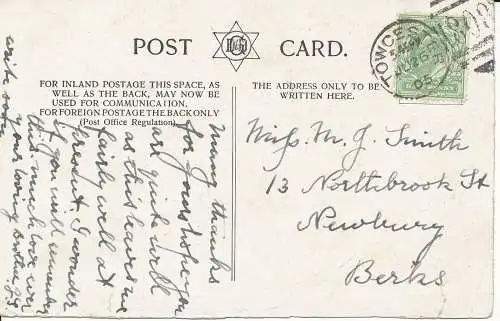 POST CARD.
FOR INLAND POSTAGE THIS SPACE, AS
WELL AS THE BACK, MAY NOW BE
USED FOR COMMUNICATION.
FOR FOREIGN POSTAGE THE BACK ONLY
(Post Office Regulation).
THE ADDRESS ONLY TO BE
WRITTEN HERE.
TOWCES
05
Miss. M. J. Smith
13 Northbrook St
Newbury
Berks
Many thanks
for yours hope you
are quite well
as this leaves me
fairly well at
present. I wonder
if you will
this much love
your loving brother
with